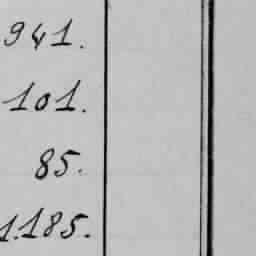 941.
101.
85.
1.185.